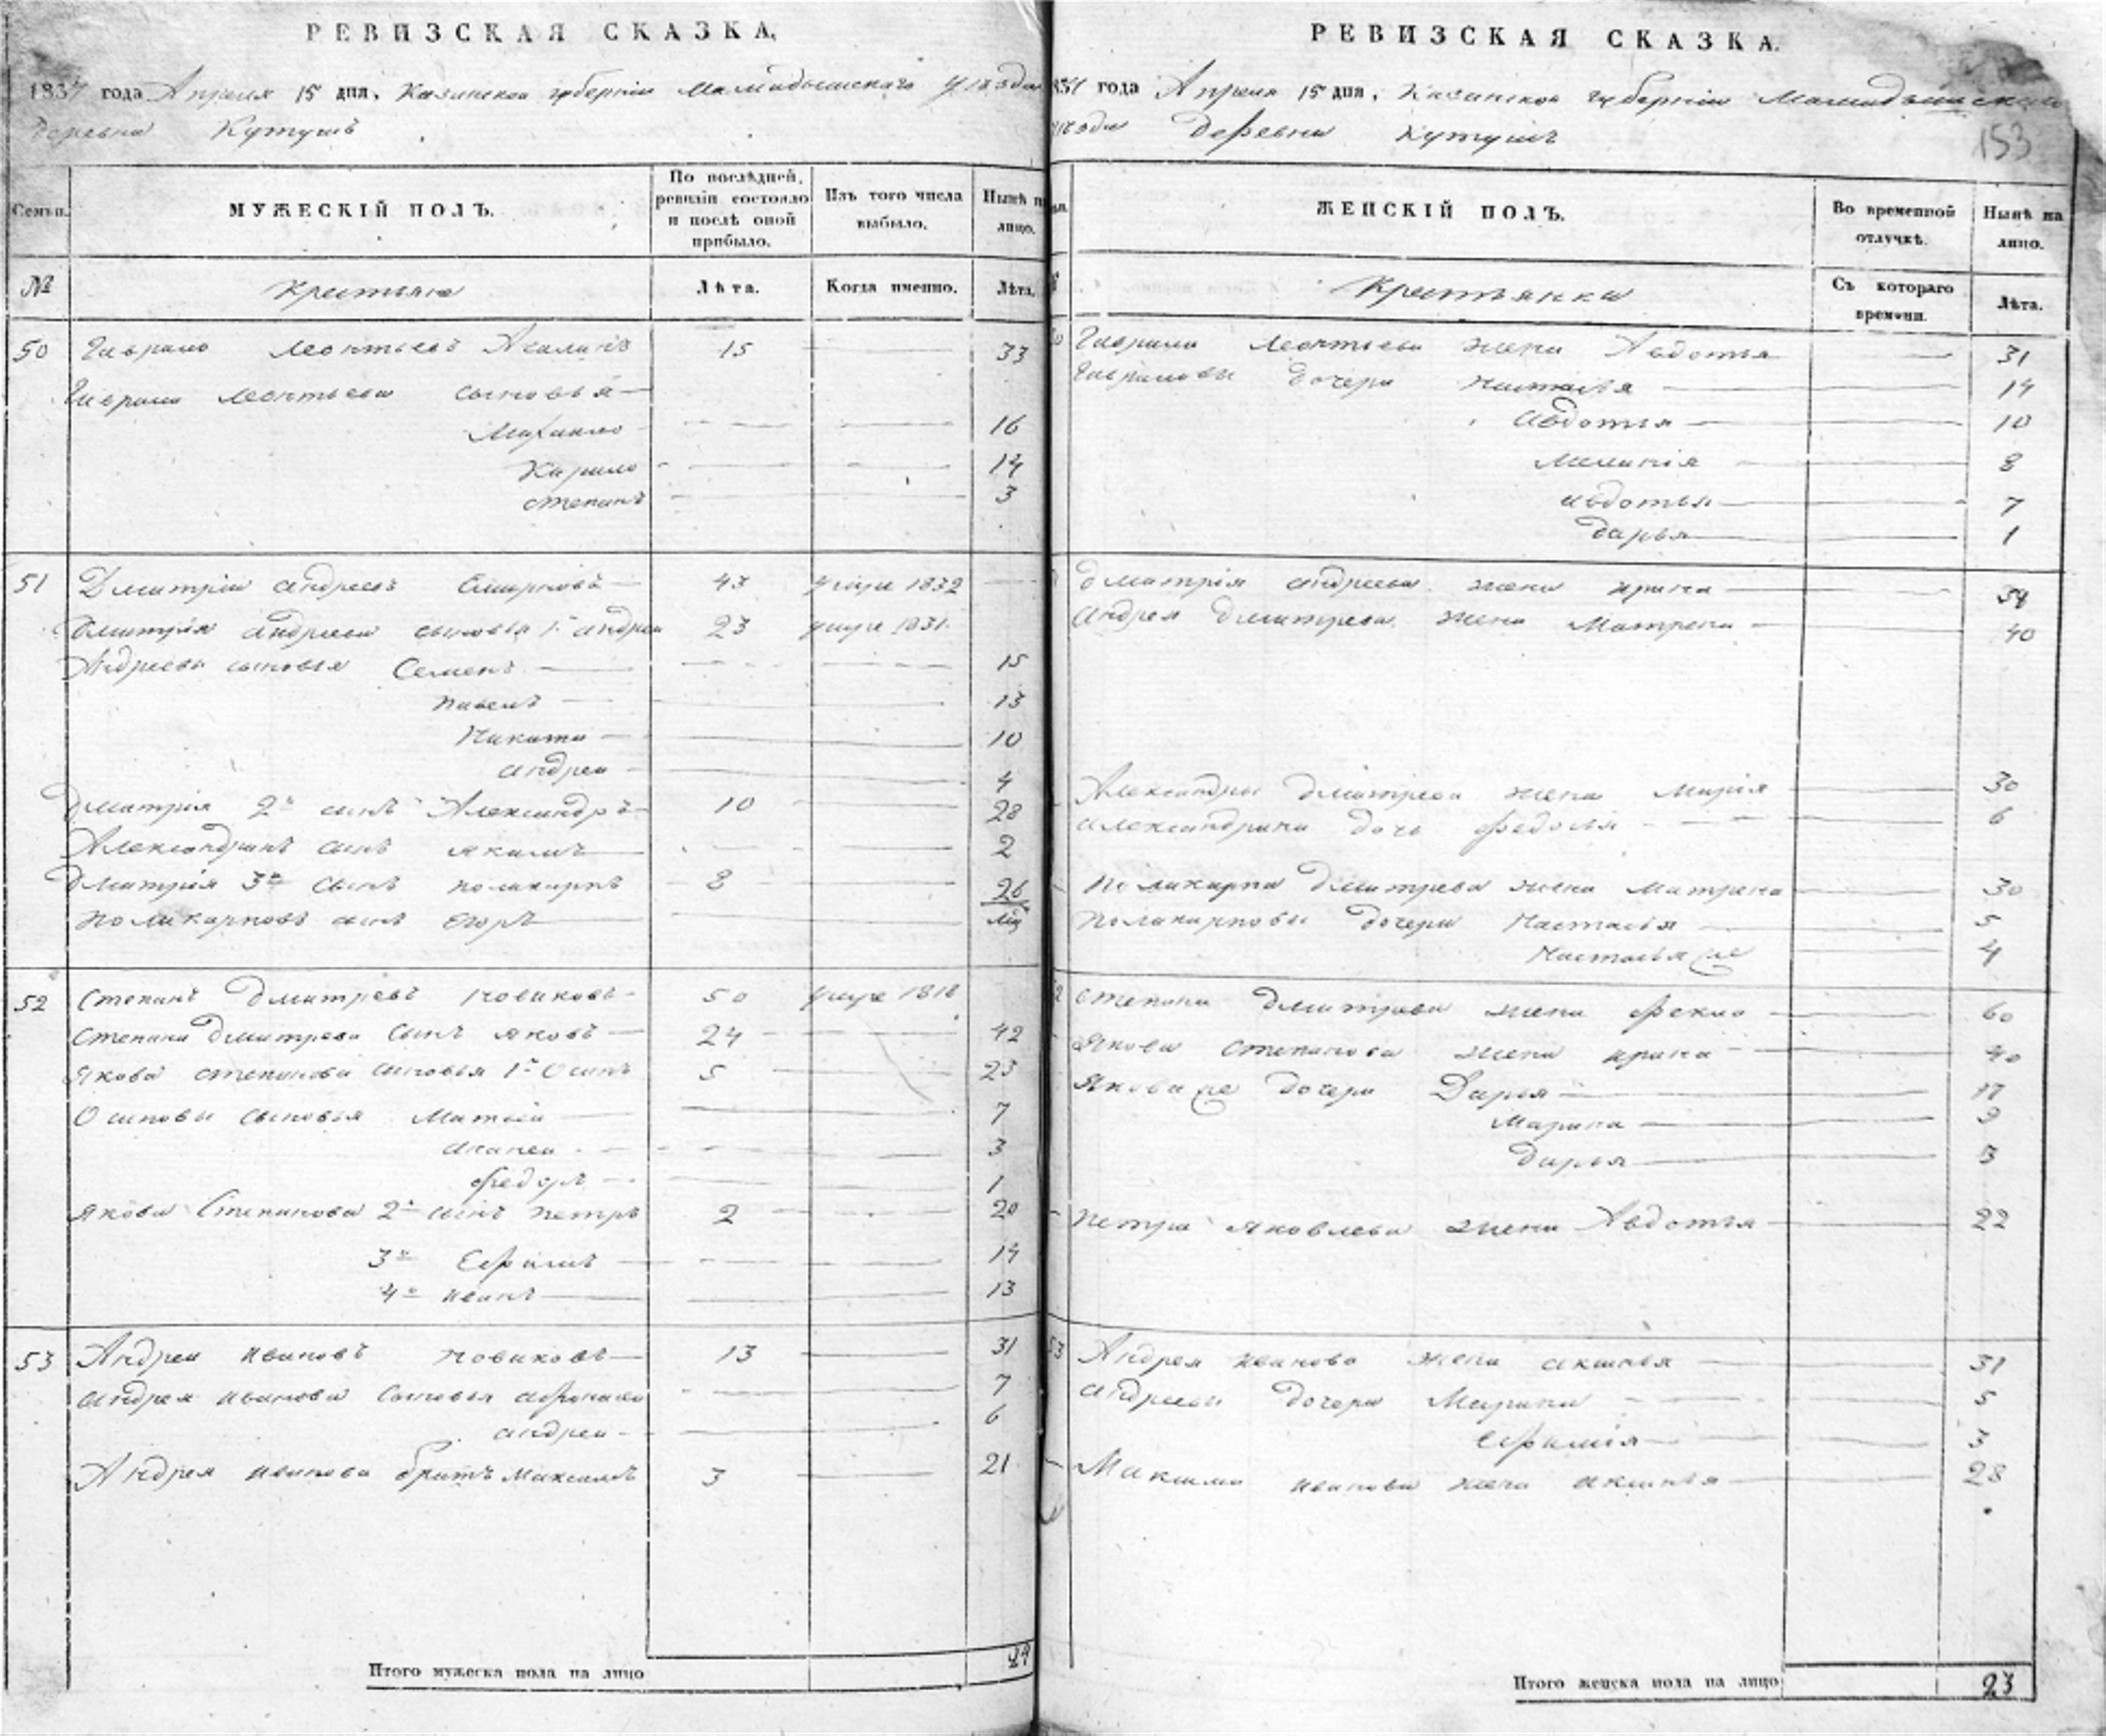 РЕВИЗСКАЯ СКАЗКА.
1834 года Апреля 15 дня. Казанской губерніи Мамадышскаго уезда
деревни Кутушъ
Семьи. МУЖЕСКІЙ ПОЛЪ. По послѣдней ревизіи состояло и послѣ оной прибыло. Изъ того числа выбыло. Нынѣ на лицо.
№ Крестьяне Лѣта. Когда именно. Лѣта.
50 Гаврило Леонтьевъ 15 33
Гаврила Леонтьева сыновья
Михаило 16
Кирило 14
степанъ 3
51 Дмитріи андреевъ Смирновъ 43 умре 1832
Дмитрія андреева сыновья 1й андреи 23 умре 1831
Андреевы сыновья Семенъ 15
павелъ 13
Никита 10
андреи 4
Дмитрія 2й сынъ Александръ 10 28
Александринъ сынъ якимъ 2
Дмитрія 3й сынъ поликарпъ 8 26
поликарповъ сынъ Егоръ
52 степанъ Дмитревъ Новиковъ 50 умре 1818
степана Дмитрева сынъ яковъ 24 42
якова степанова сыновья 1й Осипъ 5 23
Осиповы сыновья Матвей 7
ананеи 3
федоръ 1
якова Степанова 2й сынъ петръ 2 20
3й Ефимъ 14
4й иванъ 13
53 Андреи ивановъ Новиковъ 13 31
андрея иванова сыновья афонасеи 7
андреи 6
Андрея иванова братъ Максимъ 3 21
Итого мужеска пола на лицо 24
РЕВИЗСКАЯ СКАЗКА.
1834 года Апреля 15 дня, Казанской губерніи Мамадышскаго
уезда деревни Кутушъ
153
ЖЕНСКІЙ ПОЛЪ. Во временной отлучкѣ. Нынѣ на лицо.
Крестьянки Съ котораго времени. Лѣта.
Гаврила Леонтьева жена Авдотья 31
Гавриловы дочери настасья 14
авдотья 10
меланія 8
авдотья 7
дарья 1
дмитрія андреева жена ирина 54
андрея дмитрева жена Матрена 40
Александры дмитрева жена марія 30
александрина дочь федосья 6
поликарпа дмитрева жена матрена 30
поликарповы дочери Настасья 5
Настасья же 4
степана дмитрева жена фекла 60
якова степанова жена ирина 40
якова же дочери Дарья 17
марина 9
дарья 3
петра яковлева жена Авдотья 22
53 Андрея иванова жена аксинья 31
андреевы дочери Марина 5
ефимія 3
Максима иванова жена аксинья 28
Итого женска пола на лицо 23